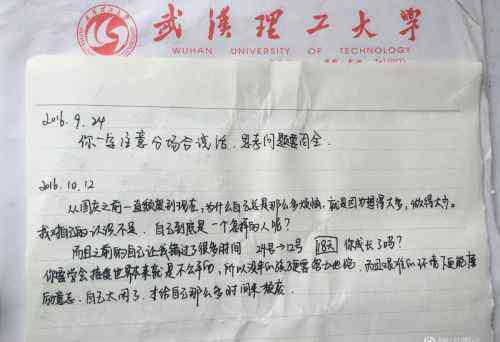 武漢理工大學
WUHAN UNIVERSITY OF TECHNOLOGY
2016.9.24
你一定注意分场合说话.思考问题要周全.
2016.10.12
从国庆之前一直颓废到现在,为什么自己总是那么多烦恼,就是因为想得太多,做得太少.
我对自己的认识不足.自己到底是一个怎样的人呢?
而且之前的自己让我错过了很多时间 24号→12号 18天 你成长了吗?
你要学会接受世界本来就是不公平的,所以没伞的孩子
而且艰难的环境下更能磨
励意志.自己太闲了.才给自己那么多时间来颓废.